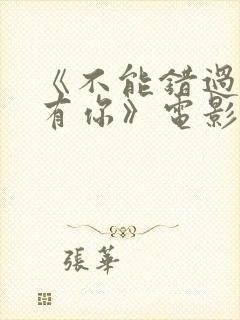 《不能錯過
有你》電影
張華